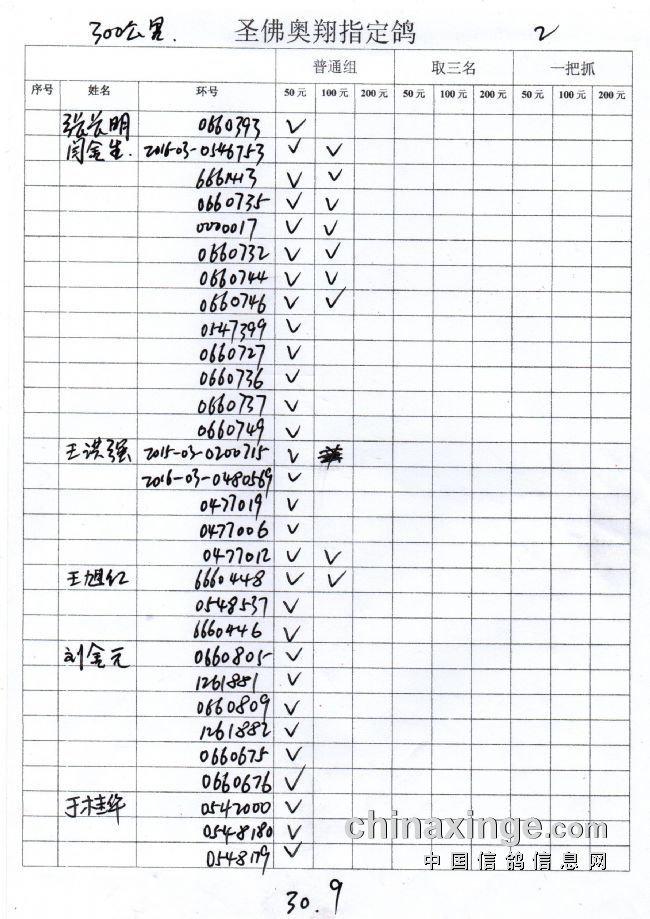 300公里. 圣佛奥翔指定鸽 2
普通组 取三名 一把抓
序号 姓名 环号 50元 100元 200元 50元 100元 200元 50元 100元 200元
张长明 0660393 √
闫金生. 2016-03-0546753 √ √
6661413 √ √
0660735 √ √
0000017 √ √
0660732 √ √
0660744 √ √
0660746 √ √
0547399 √
0660727 √
0660736 √
0660737 √
0660749 √
王洪强 2015-03-0200715 √
2016-03-0480569 √
0477019 √
0477006 √
0477012 √ √
王旭红 6660448 √ √
0548537 √
6660446 √
刘金元 0660805 √
1261881 √
0660809 √
1261882 √
0660675 √
0660676 √
于桂华 0542000 √
0548180 √
0548179 √
chinaxinge.com
中国信鸽信息网
30.9